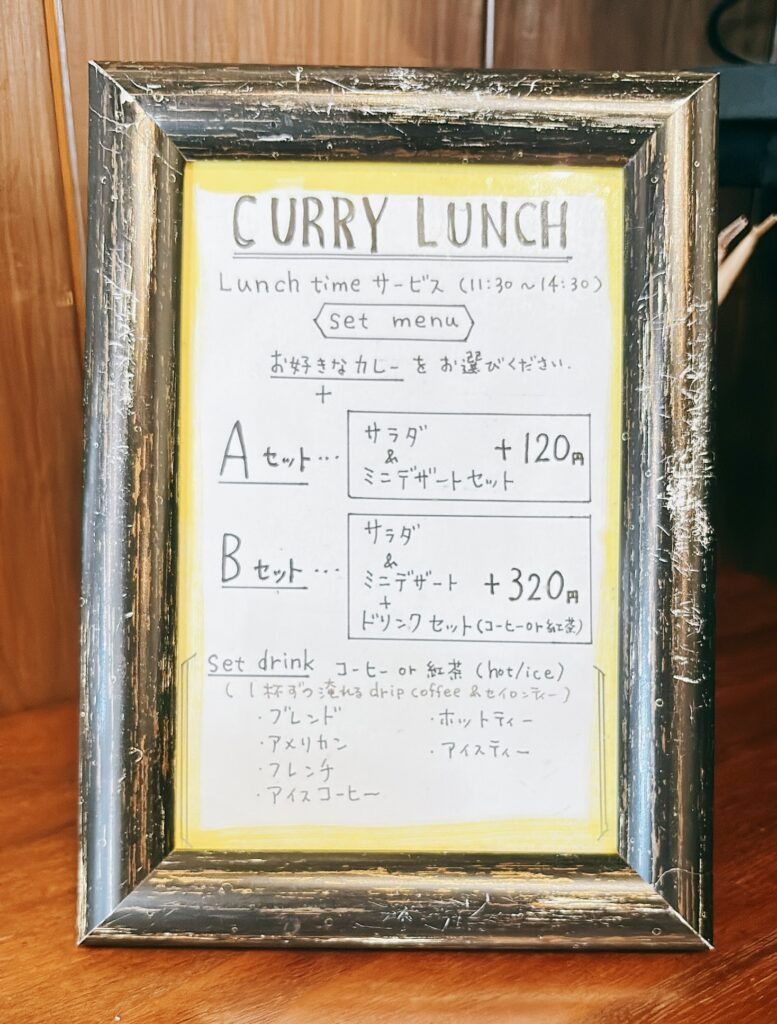 CURRY LUNCH
Lunch time サービス (11:30～14:30)
set menu
お好きなカレーをお選びください.
+
Aセット…
サラダ
&
ミニデザートセット
+120円
Bセット…
サラダ
&
ミニデザート
+
ドリンクセット(コーヒーor紅茶)
+320円
set drink コーヒー or 紅茶 (hot/ice)
(1杯ずつ淹れるdrip coffee & セイロンティー)
・ブレンド
・アメリカン
・フレンチ
・アイスコーヒー
・ホットティー
・アイスティー